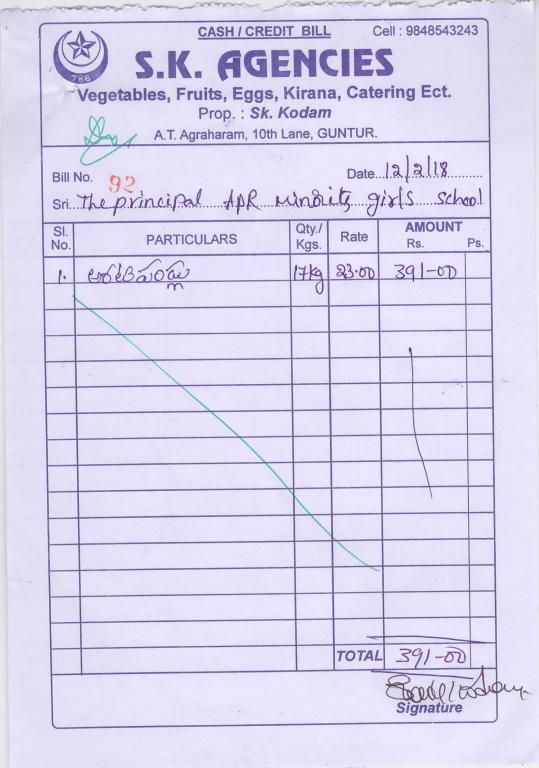 CASH / CREDIT BILL Cell : 9848543243
786
S.K. AGENCIES
Vegetables, Fruits, Eggs, Kirana, Catering Ect.
Prop. : Sk. Kodam
A.T. Agraharam, 10th Lane, GUNTUR.
Bill No. 92 Date 12/2/18
Sri. The principal APR minority girls school
Sl. No. PARTICULARS Qty./ Kgs. Rate AMOUNT Rs. Ps.
1. అరటిపండ్లు 17kg 23.00 391-00
TOTAL 391-00
Signature